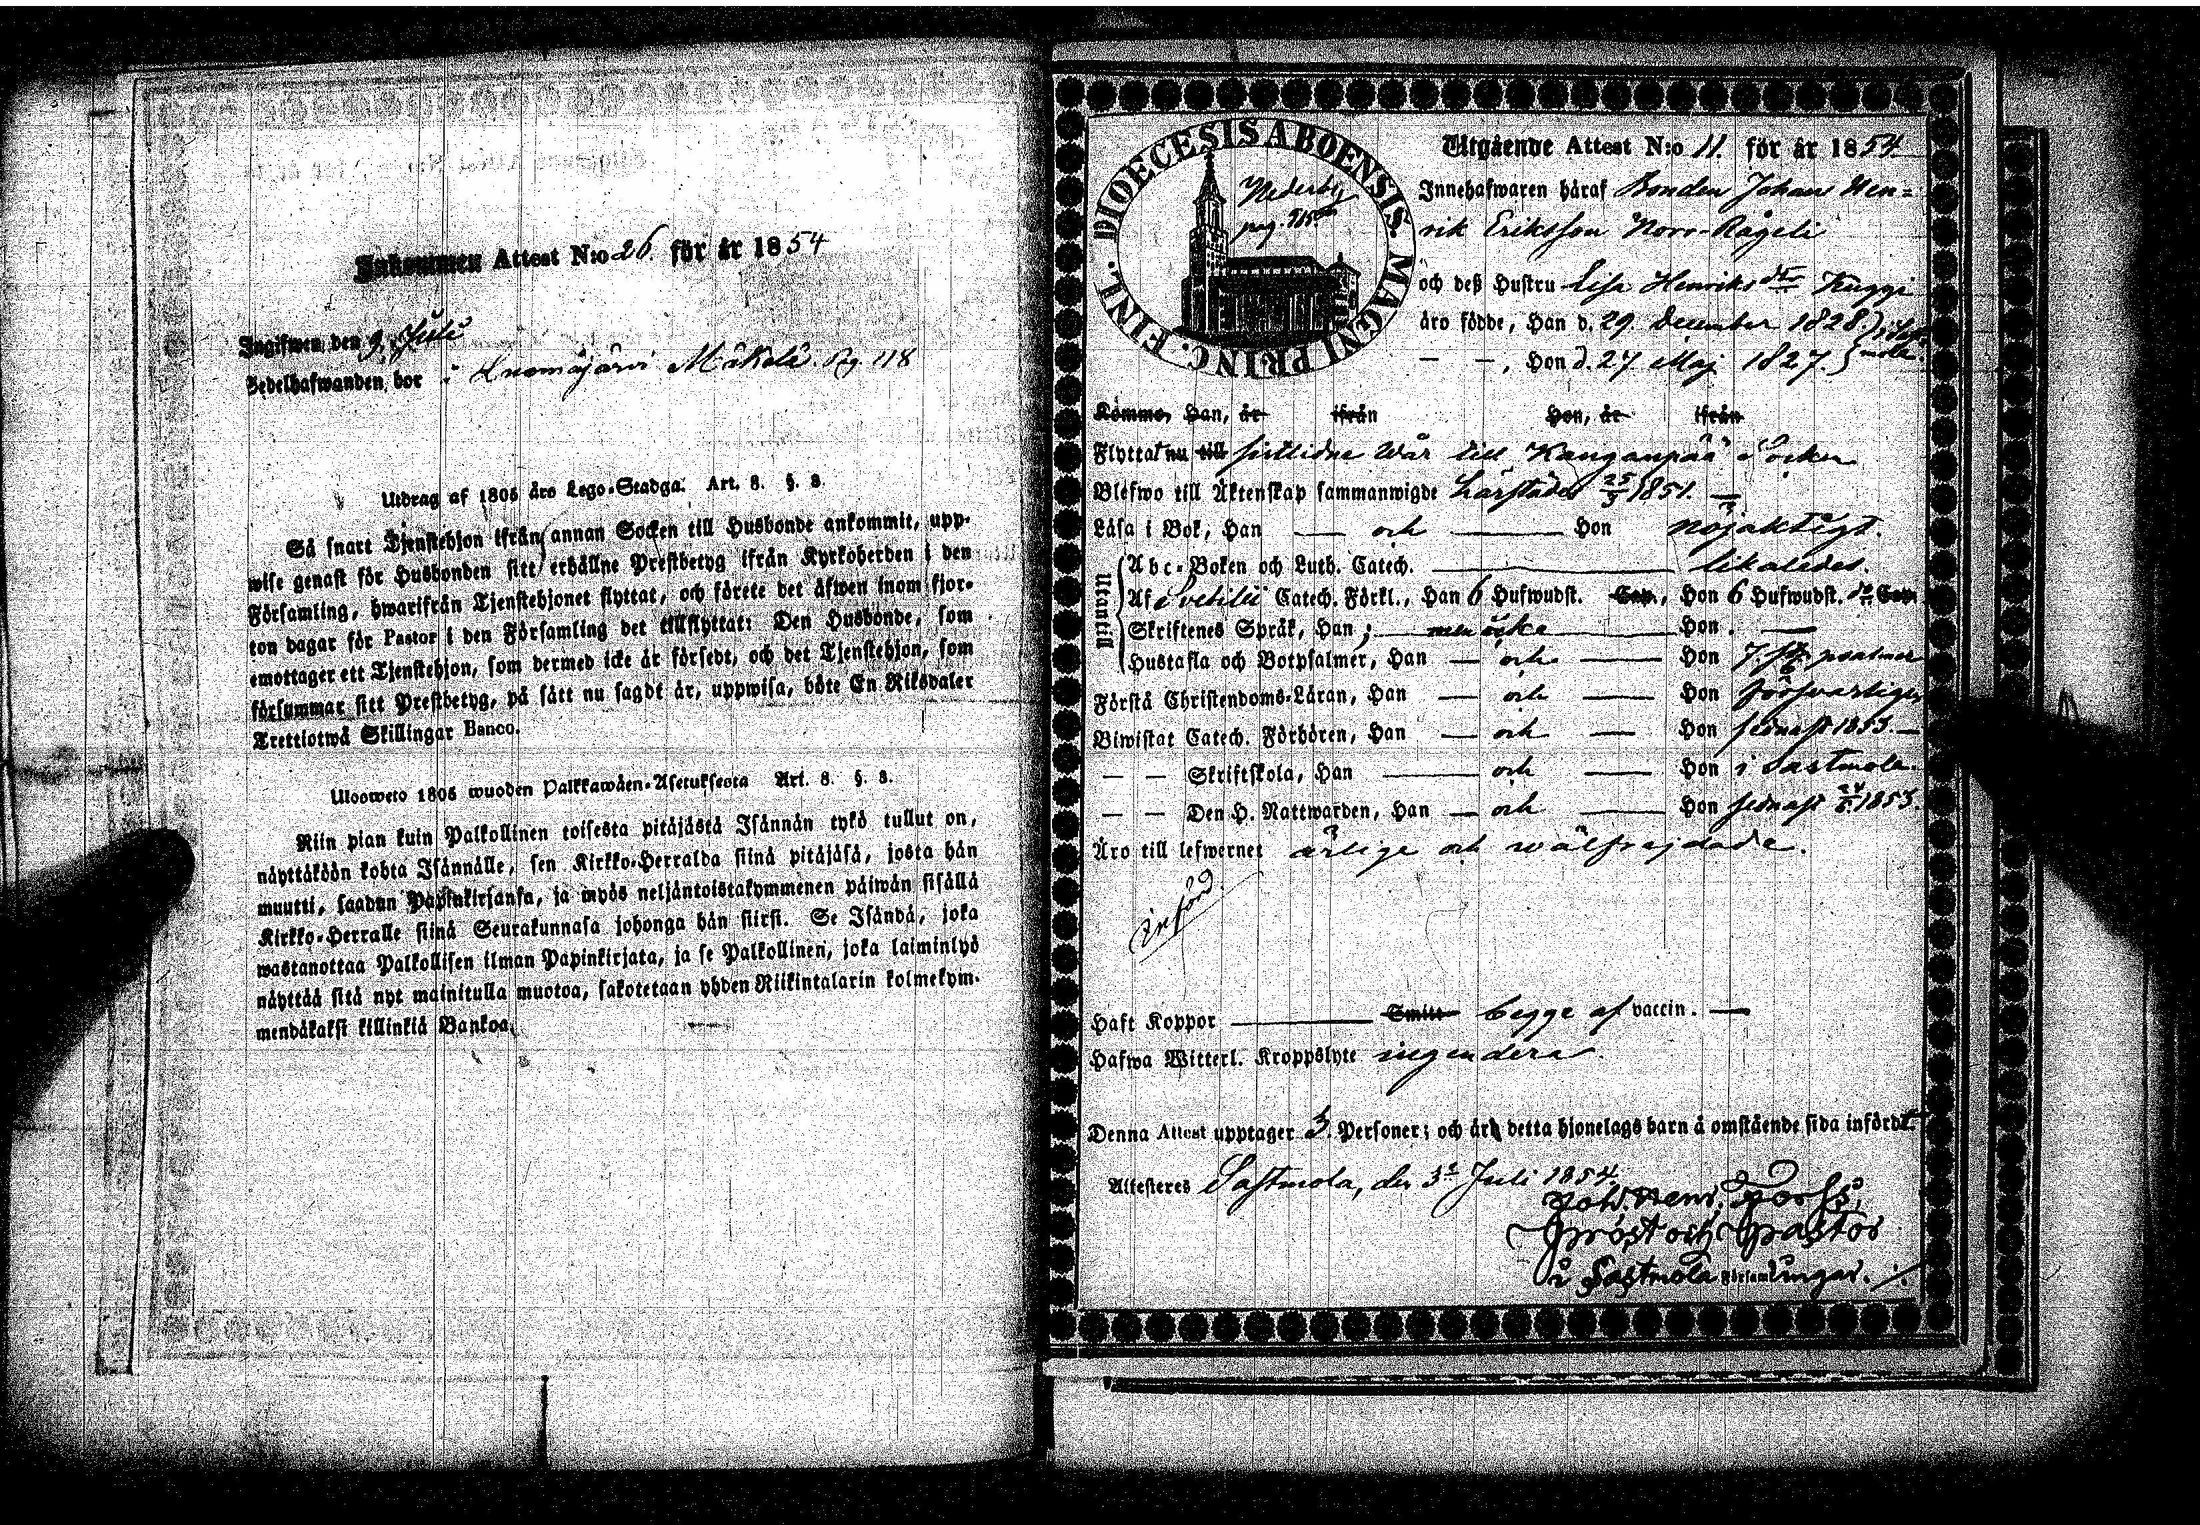 Inkommen Attest N:o 26. för år 1854
Ingifwen den 9 Juli
Sedelhafwanden, bor i Luomajärvi Mäkelä. Pag. 118
Utdrag af 1805 års Lego-Stadga. Art. 8. §. 8.
Så snart Tjenstehjon ifrån annan Socken till Husbonde ankommit, upp-
wise genast för Husbonden sitt erhållne Prestbetyg ifrån Kyrkoherden i den
Församling, hwarifrån Tjenstehjonet flyttat, och förete det äfwen inom fjor-
ton dagar för Pastor i den Församling det tillflyttat: Den Husbonde, som
emottager ett Tjenstehjon, som dermed icke är försedt, och det Tjenstehjon, som
försummar sitt Prestbetyg, på sätt nu sagdt är, uppwisa, böte En Riksdaler
Trettiotwå Skillingar Banco.
Ulosweto 1805 wuoden Palkkawäen-Asetuksesta Art. 8. §. 8.
Niin pian kuin Palkollinen toisesta pitäjästä Isännän tykö tullut on,
näyttäköön kohta Isännälle, sen Kirkko-Herralda siinä pitäjäsä, josta hän
muutti, saadun Papinkirjansa, ja myös neljäntoistakymmenen päiwän sisällä
Kirkko-Herralle siinä Seurakunnasa johonga hän siirsi. Se Isändä, joka
wastanottaa Palkollisen ilman Papinkirjata, ja se Palkollinen, joka laiminlyö
näyttää sitä nyt mainitulla muotoa, sakotetaan yhden Riikintalarin kolmekym-
mendäkaksi killinkiä Bankoa.
DIOECESIS ABOENSIS MAGNI PRINC. FINL.
Nederby
pag.
Utgående Attest N:o 11. för år 1854.
Innehafwaren häraf Bonden Johan Hen-
rik Eriksson Norr-Rågeli
och deß Hustru Lisa Henriksdr Kuggi
äro födde, Han d. 29 december 1828
— — , Hon d. 27 Maj 1827.
Komme, Han, år ifrån Hon, år ifrån
Flyttat nu till sistlidne Wår till Kanganpää Socken
Blefwo till Äktenskap sammanwigde härstädes 25/3 1851. —
Läsa i Bok, Han — och — Hon nöjaktigt.
Utantill
Abc-Boken och Luth. Catech. — likaledes.
Af Svebilii Catech. Förkl., Han 6 Hufwudst. Cap., Hon 6 Hufwudst. do Cap.
Skriftenes Språk, Han ; — men icke — Hon . —
Hustafla och Botpsalmer, Han — och — Hon 7. psalmer
Förstå Christendoms-Läran, Han — och — Hon försvarligen
Biwistat Catech. Förhören, Han — och — Hon sednast 1853. —
— — Skriftskola, Han — och — Hon i Sastmola.
— — Den H. Nattwarden, Han — och — Hon sednast 1853.
Äro till lefwernet ärlige och wälfrejdade.
införd.
Haft Koppor — Smitt begge af vaccin. —
Hafwa Witterl. Kroppslyte ingendera.
Denna Attest upptager 3. Personer; och äro detta hjonelags barn å omstående sida infördt
Attesteres Sastmola, den 3e Juli 1854.
Joh. Henr. Forss,
Prost och Pastor
i Sastmola Församlingar.